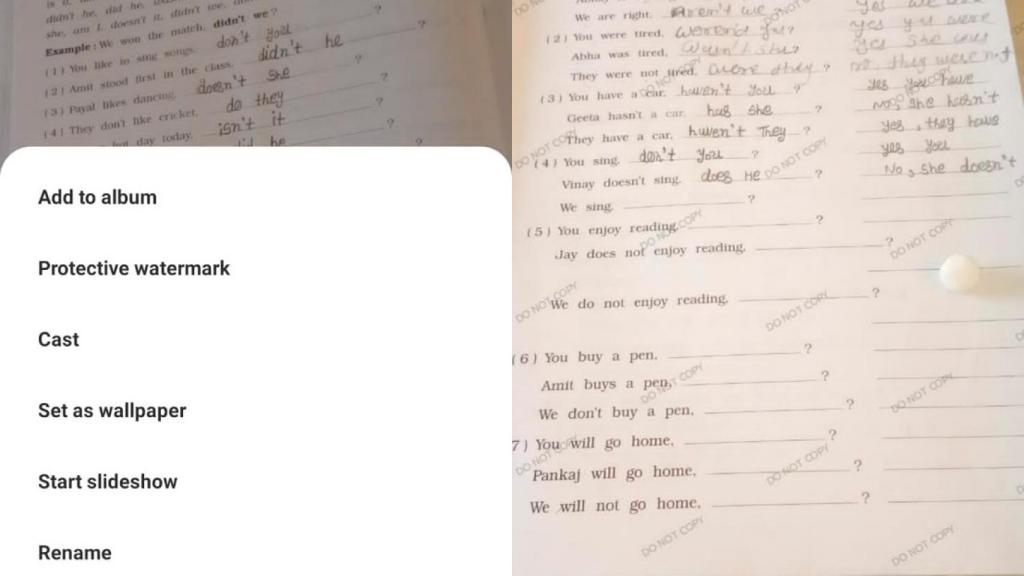 didn't he, did he,
she, am I, doesn't it, didn't we,
Example : We won the match, didn't we ?
( 1 ) You like to sing songs, don't you ?
( 2 ) Amit stood first in the class, didn't he ?
( 3 ) Payal likes dancing, doesn't she ?
( 4 ) They don't like cricket, do they ?
day today, isn't it ?
he ?
Add to album
Protective watermark
Cast
Set as wallpaper
Start slideshow
Rename
We are right, Aren't we
( 2 ) You were tired, weren't you? yes you were
Abha was tired, wasn't she? yes she was
They were not tired, were they ? no, they were not
( 3 ) You have a car, haven't you ? yes you have
Geeta hasn't a car, has she ? No, she hasn't
They have a car, haven't They ? yes, they have
( 4 ) You sing, don't you ? yes you
Vinay doesn't sing, does He ? No, she doesn't
We sing, ?
( 5 ) You enjoy reading, ?
Jay does not enjoy reading, ?
We do not enjoy reading, ?
( 6 ) You buy a pen, ?
Amit buys a pen, ?
We don't buy a pen, ?
7 ) You will go home, ?
Pankaj will go home, ?
We will not go home, ?
DO NOT COPY